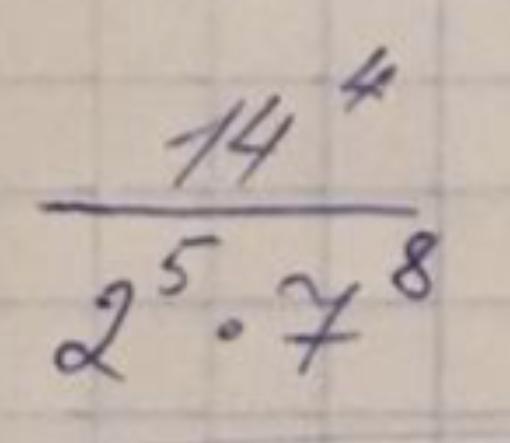 14⁴
2⁵ · 7⁸